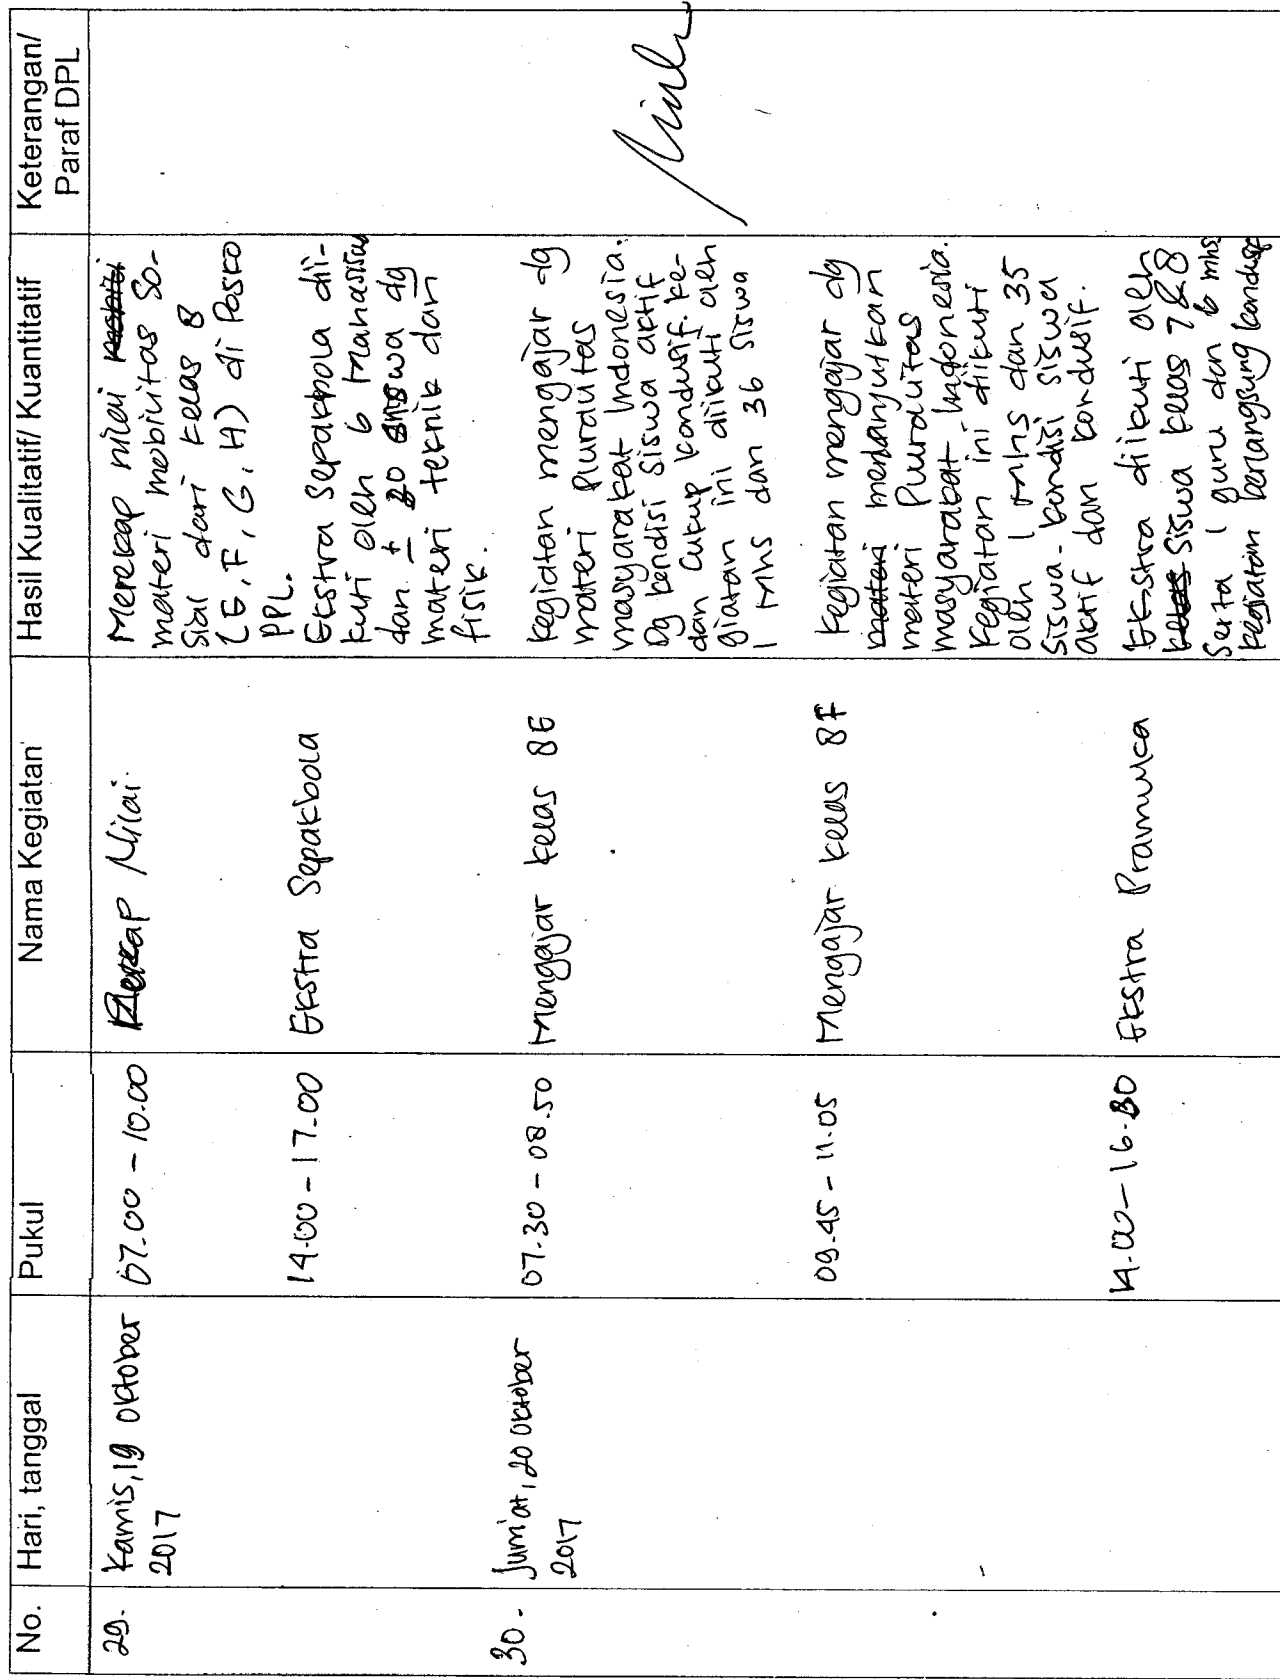 No. Hari, tanggal Pukul Nama Kegiatan Hasil Kualitatif/ Kuantitatif Keterangan/ Paraf DPL
29. Kamis, 19 Oktober 2017
07.00 - 10.00 Rekap Nilai.
Merekap nilai
materi mobilitas So-
sial dari kelas 8
(E, F, G, H) di Posko
PPL.
14.00 - 17.00 Ekstra Sepakbola
Ekstra Sepakbola dii-
kuti oleh 6 Mahasiswa
dan ± 20 siswa dg
materi teknik dan
fisik.
30. Jum'at, 20 Oktober 2017
07.30 - 08.50 Mengajar kelas 8E
Kegiatan mengajar dg
materi Pluralitas
masyarakat Indonesia.
Dg kondisi siswa aktif
dan cukup kondusif. Ke-
giatan ini diikuti oleh
1 Mhs dan 36 siswa
09.45 - 11.05 Mengajar kelas 8F
Kegiatan mengajar dg
materi melanjutkan
materi Pluralitas
masyarakat Indonesia.
Kegiatan ini diikuti
oleh 1 Mhs dan 35
Siswa. kondisi siswa
aktif dan kondusif.
14.00 - 16.30 Ekstra Pramuka
Ekstra diikuti oleh
kelas Siswa kelas 7 & 8
Serta 1 guru dan 6 mhs.
Kegiatan berlangsung kondusif